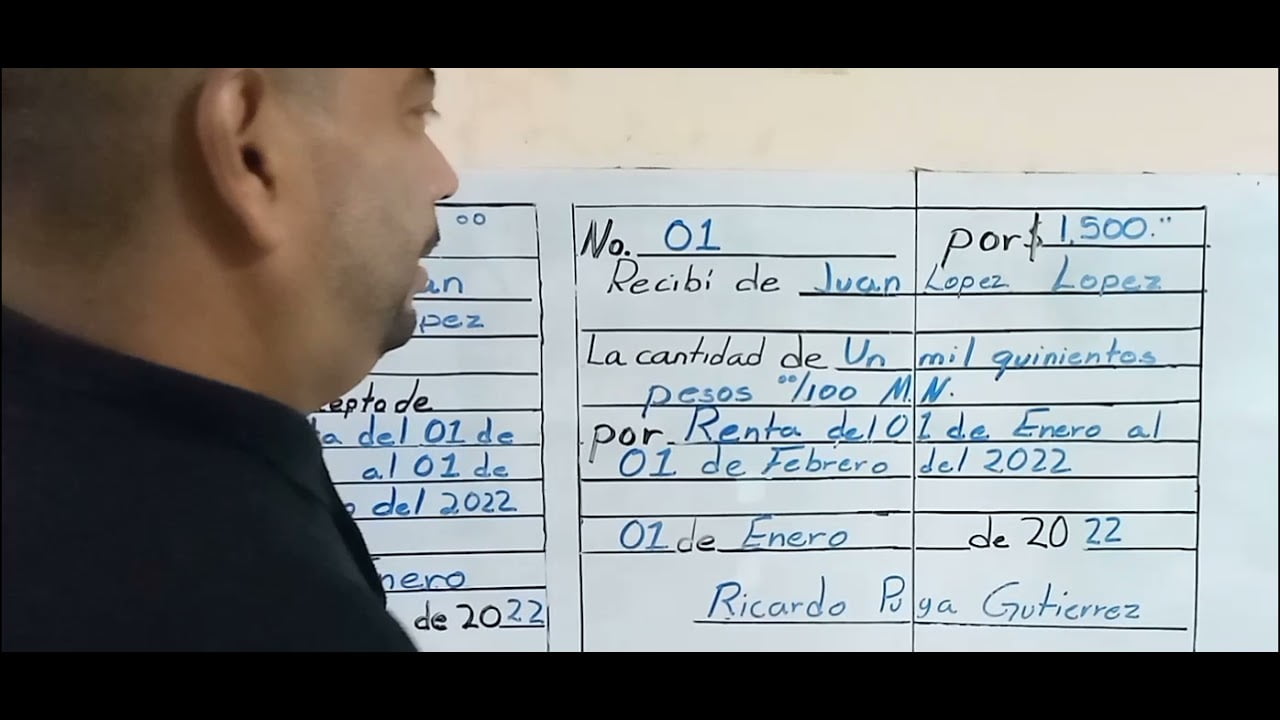 oo
an
pez
epto de
a del 01 de
al 01 de
o del 2022
nero
de 2022
No. 01 por $ 1,500.°°
Recibí de Juan Lopez Lopez
La cantidad de Un mil quinientos
pesos °°/100 M.N.
por Renta del 01 de Enero al
01 de Febrero del 2022
01 de Enero de 2022
Ricardo Puga Gutierrez